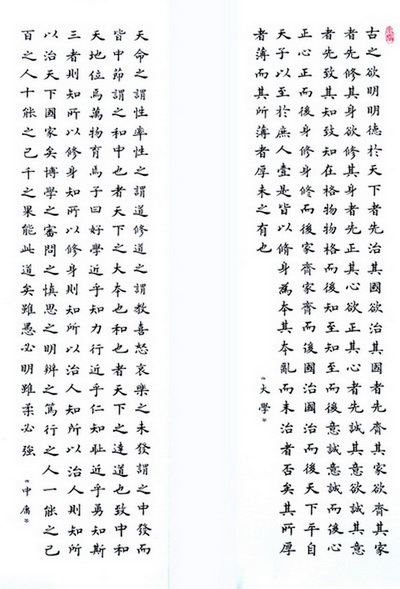 古之欲明明德於天下者先治其國欲治其國者先齊其家欲齊其家
者先修其身欲修其身者先正其心欲正其心者先誠其意欲誠其意
者先致其知致知在格物物格而後知至知至而後意誠意誠而後心
正心正而後身修身修而後家齊家齊而後國治國治而後天下平自
天子以至於庶人壹是皆以脩身為本其本亂而末治者否矣其所厚
者薄而其所薄者厚未之有也
《大學》
天命之謂性率性之謂道修道之謂教喜怒哀樂之未發謂之中發而
皆中節謂之和中也者天下之大本也和也者天下之達道也致中和
天地位焉萬物育焉子曰好學近乎知力行近乎仁知恥近乎勇知斯
三者則知所以修身知所以修身則知所以治人知所以治人則知所
以治天下國家矣博學之審問之慎思之明辨之篤行之人一能之己
百之人十能之己千之果能此道矣雖愚必明雖柔必強
《中庸》